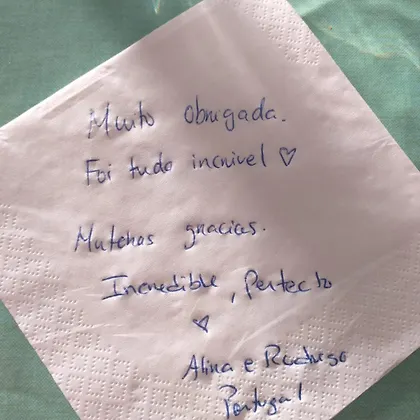 Muito obrigada.
Foi tudo incrivel ♡
Mutchas gracias.
Incredible, Perfecto
♡
Alina e Rodrigo
Portugal